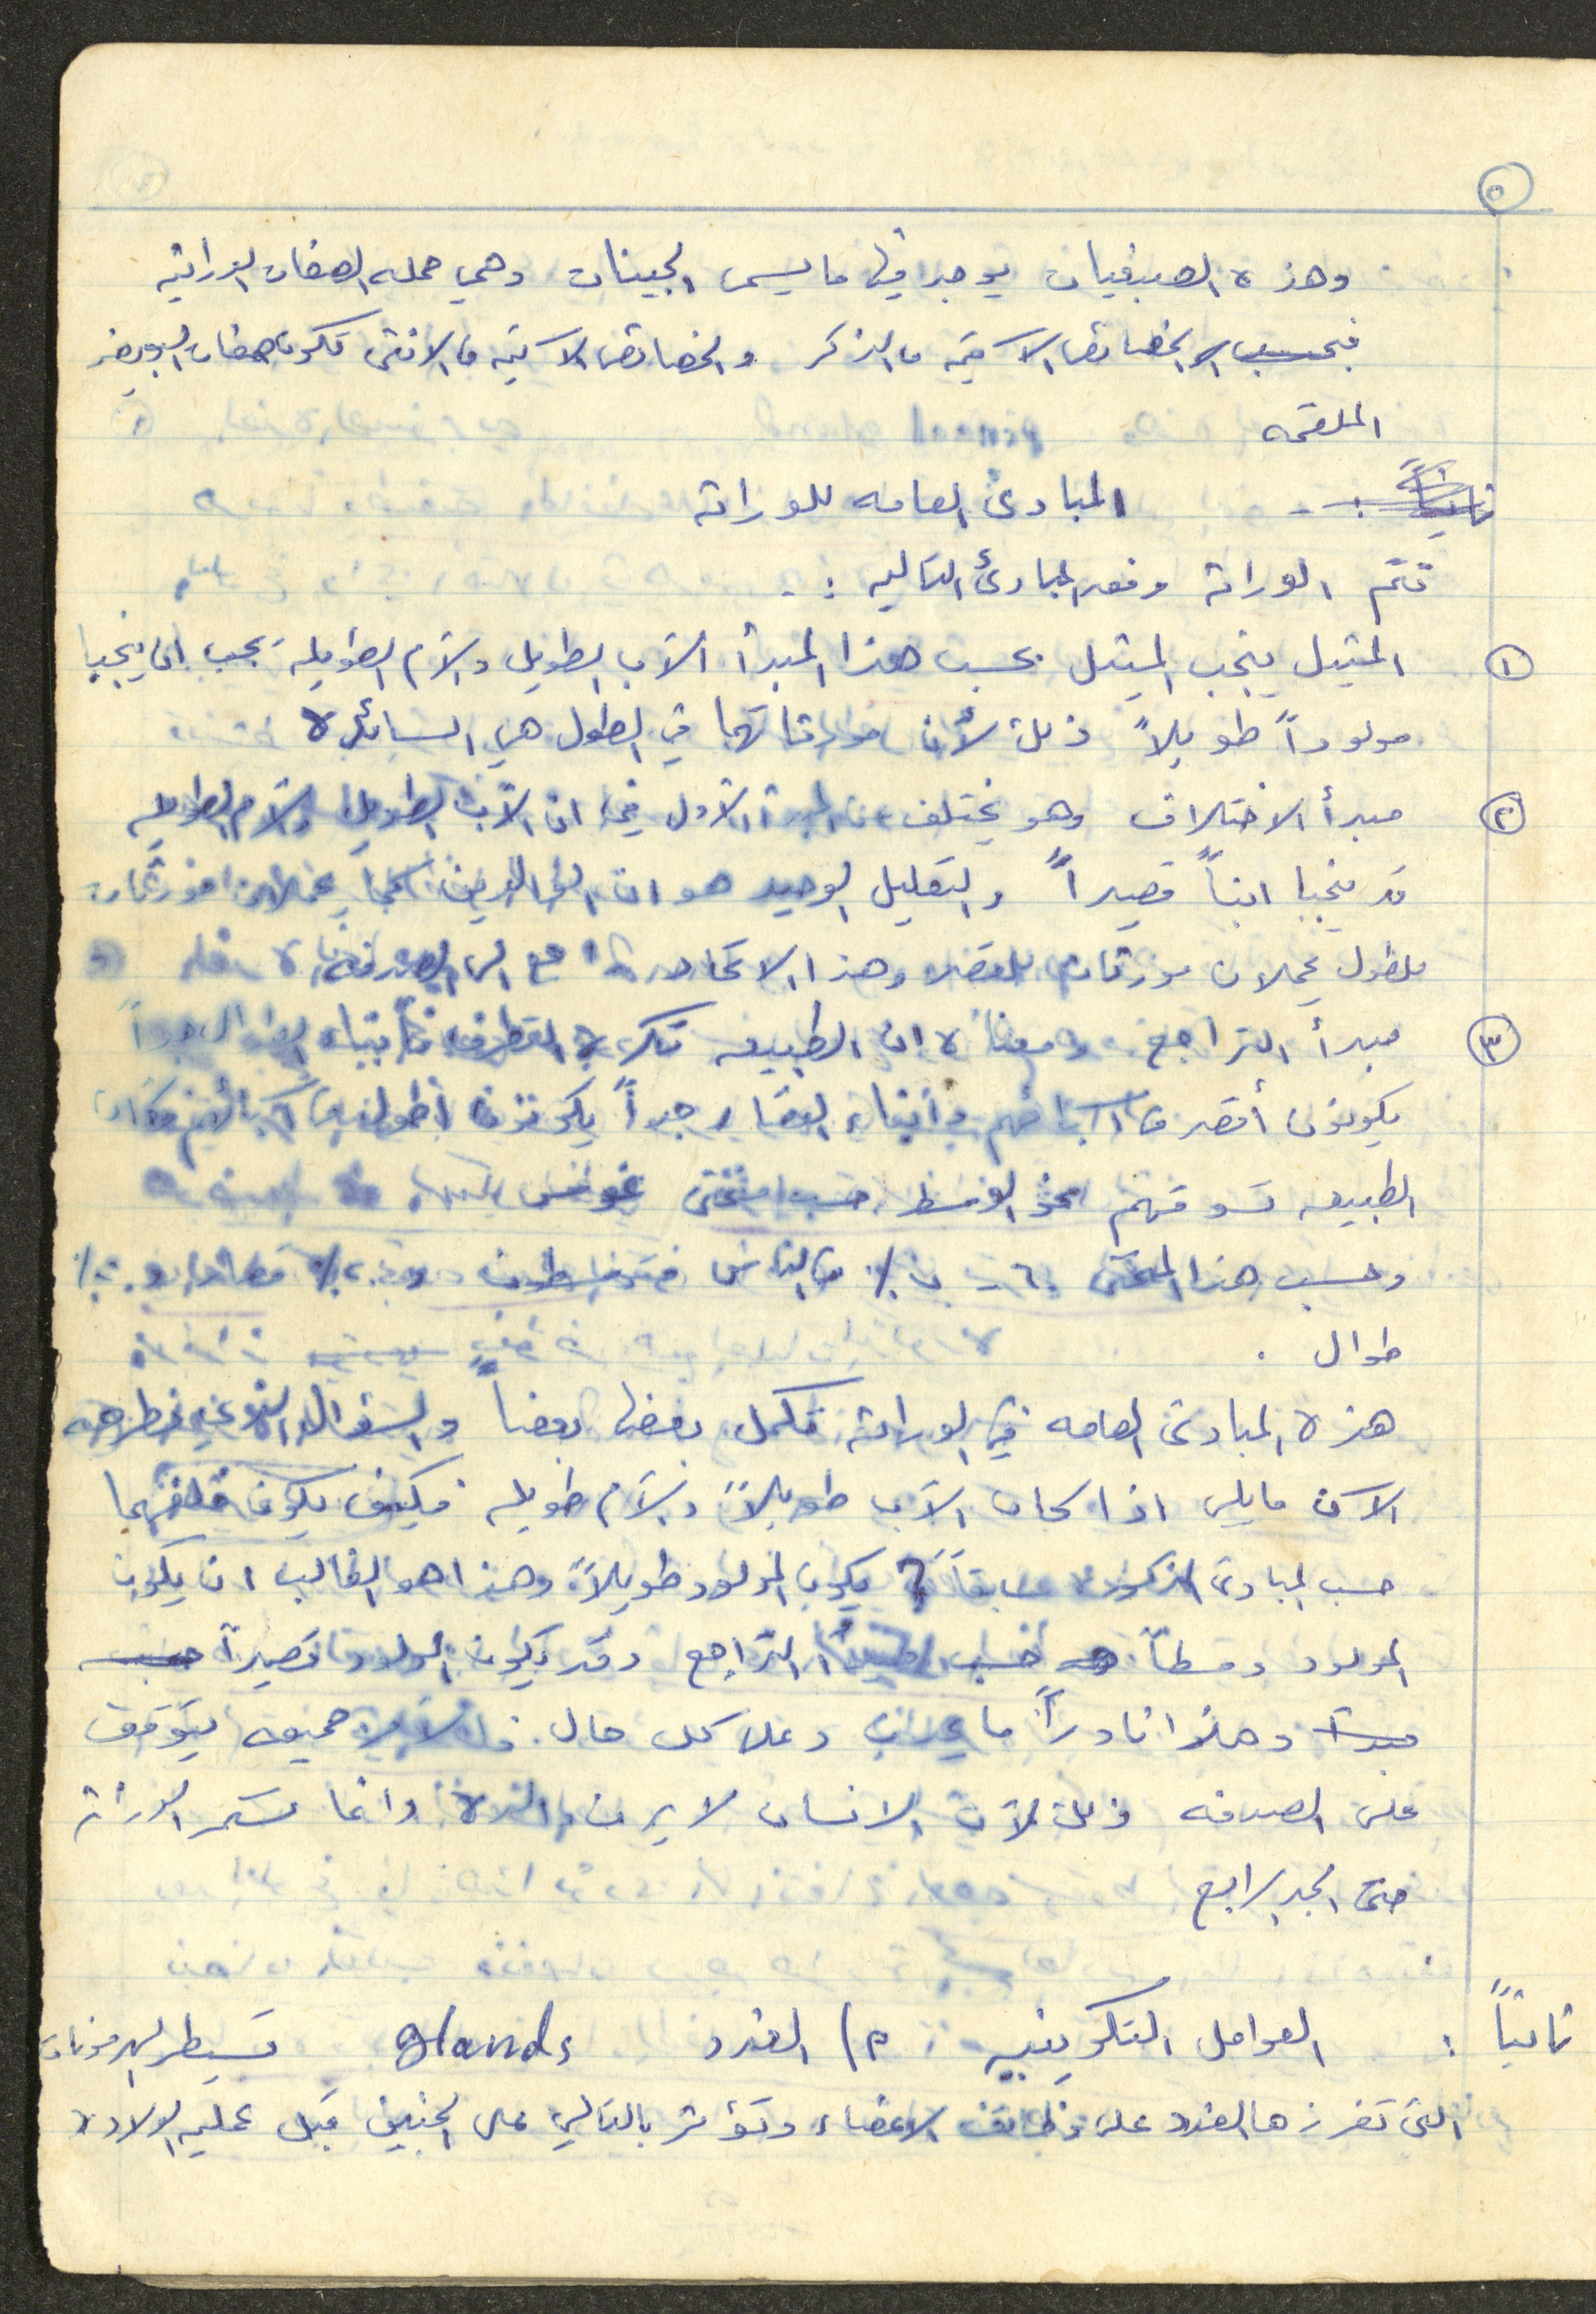 ٥
وهذه الصبغيات يوجد فيها ما يسمى الجينات وهي حملة الصفات الوراثيه
فبحسب الخصائص الآتيه من الذكر والخصائص الآتيه من الانثى تتكون صفات البويضه
الملقحه
ثانياً : - المبادئ العامه للوراثة
تتم الوراثة وفق المبادئ التاليه :-
١ المثيل ينجب المثيل بحسب هذا المبدأ الأب الطويل والأم الطويله يجب ان ينجبا
مولوداً طويلاً ذلك لأن مورثاتهما في الطول هي السائده
٢ مبدأ الاختلاف وهو يختلف عن المبدأ الأول في ان الأب الطويل والأم الطويله
قد ينجبا ابناً قصيراً والتعليل الوحيد هو ان الوالدين كما يحملان مورثات
للطول يحملان مورثات للقصر وهذا الاتحاد راجع الى الصدفه
٣ مبدأ التراجع ومعناه ان الطبيعه تكره التطرف فأبناء الطوال جداً
يكونون أقصر من آبائهم وأبناء القصار جداً يكونون أطول من آبائهم وكأن
الطبيعه تسوقهم نحو الوسط حسب منحنى غوص
وحسب هذا المنحنى ٦٠ % من الناس متوسطون و ٢٠ % قصار و ٢٠ %
طوال .
هذه المبادئ العامه في الوراثة تكمل بعضها بعضاً والسؤال الذي نطرحه
الآن ما يلي اذا كان الأب طويلاً والأم طويله فكيف يكون خلفهما
حسب المبادئ المذكوره سابقاً ؟ يكون المولود طويلاً وهذا هو الغالب ان يكون
المولود وسطاً حسب مبدأ التراجع وقد يكون المولود قصيراً حسب
مبدأ وهذا نادراً ما يحدث وعلى كل حال فالأمر جميعه يتوقف
على الصدفه ذلك لأن الانسان لا يرث والديه وانما تستمر الوراثة
حتى الجد الرابع
ثانياً : العوامل التكوينيه : ٢) الغدد glands تسيطر الهرمونات
التي تفرزها الغدد على وظائف الاعضاء وتؤثر بالتالي على الجنين قبل عملية الولاده